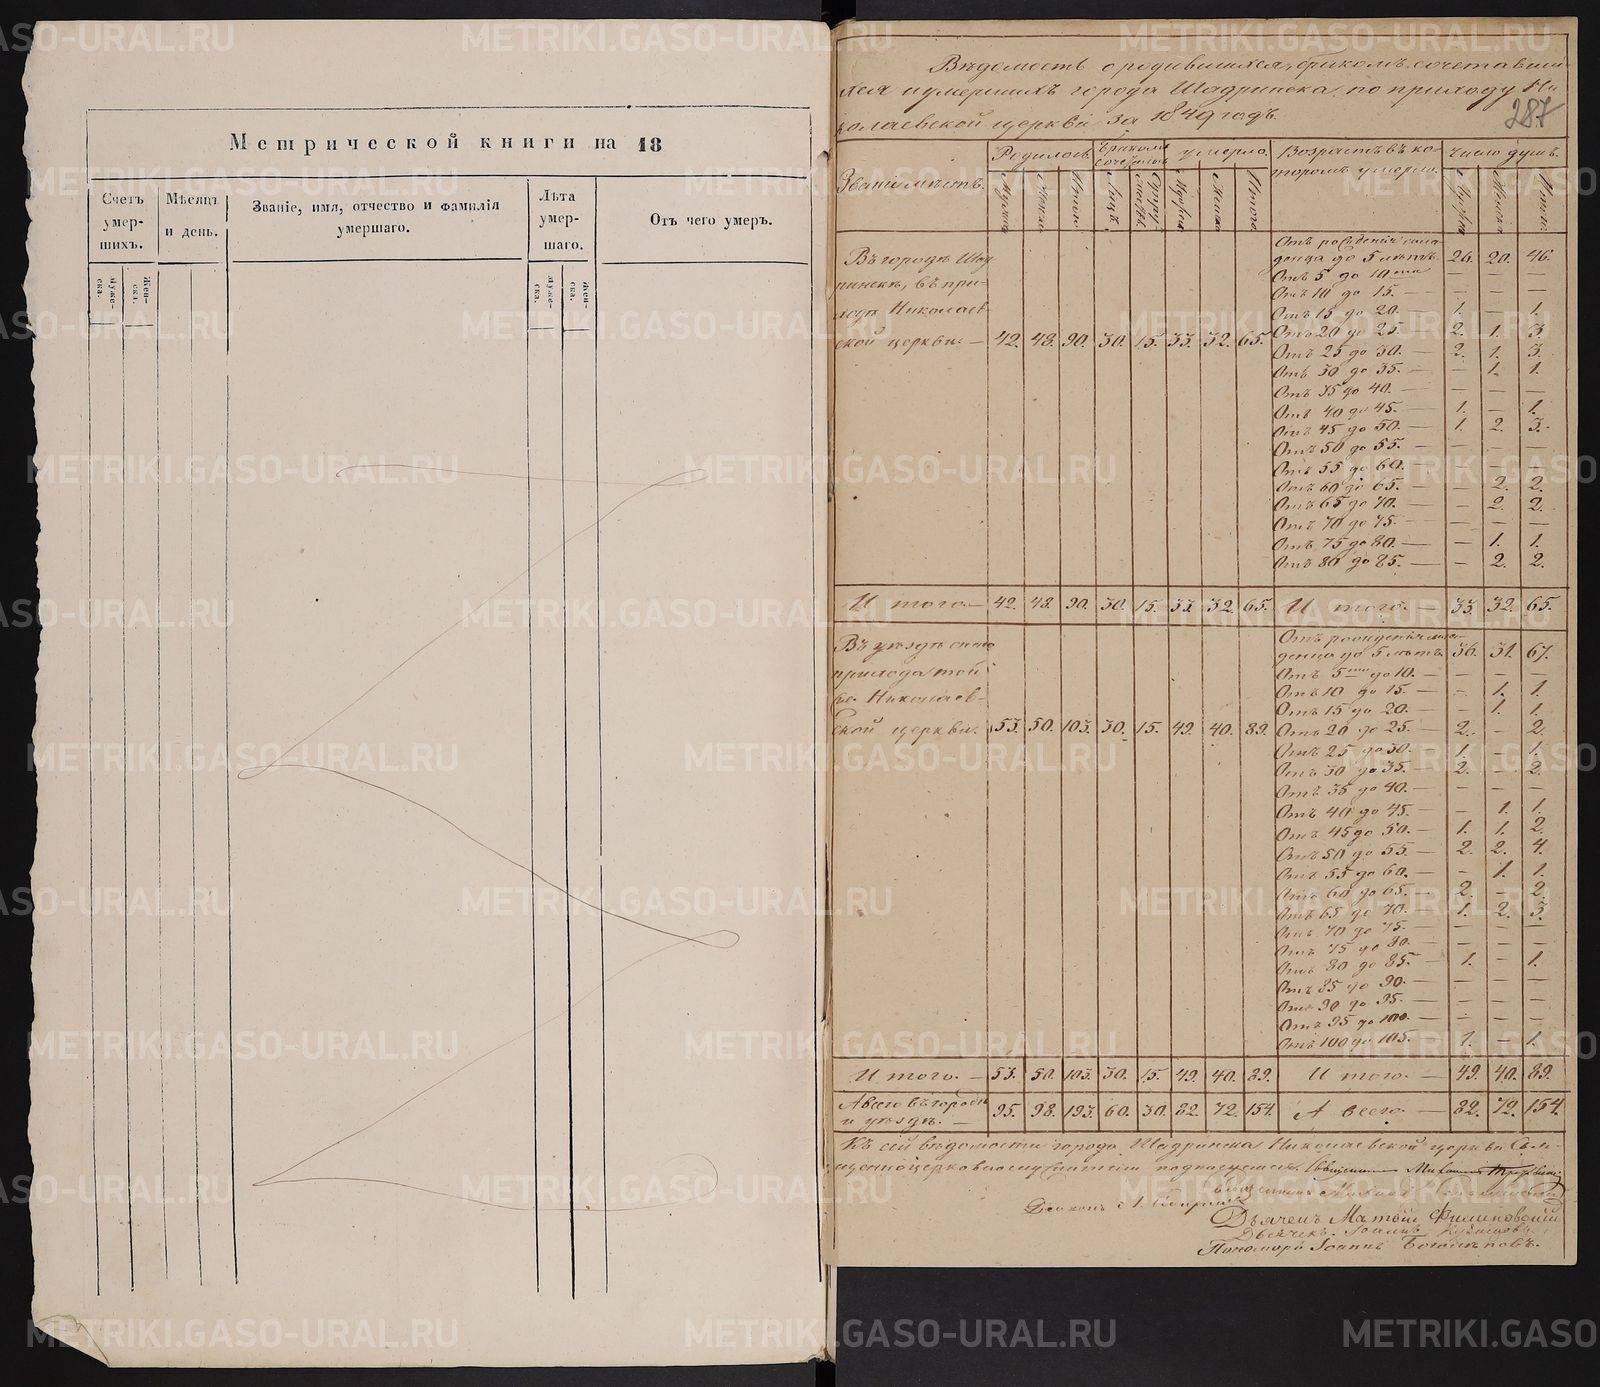 Метрической книги на 18
Счетъ умер-шихъ.
Мѣсяцъ и день.
Званіе, имя, отчество и фамилія умершаго.
Лѣта умер-шаго.
Отъ чего умеръ.
муже-ска. жен-ска. муже-ска. жен-ска.
Вѣдомость о родившихся, бракомъ сочетавши-
хся и умершихъ города Шадринска по приходу Ни-
колаевской церкви за 1849 годъ.
287
Званіе мѣстъ. Родилось. Бракомъ сочеталось умерло. Возрастъ въ ко-торомъ умерли. Число душъ.
Мужска Женска Итого Лицъ Мужска Женска Итого Мужска Женска Итого
Въ городѣ Шад-
ринскѣ, въ при-
ходѣ Николаев-
ской церкви. — 42. 48. 90. 30. 15. 33. 32. 65.
Отъ рожденія мла-
денца до 5 лѣтъ. 26. 20. 46.
Отъ 5 до 10ти — — —
Отъ 10 до 15. — — — —
Отъ 15 до 20. 1. — 1.
Отъ 20 до 25. 2. 1. 3.
Отъ 25 до 30. — 2. 1. 3.
Отъ 30 до 35. — — 1. 1.
Отъ 35 до 40. — — — —
Отъ 40 до 45. — 1. — 1.
Отъ 45 до 50. — 1. 2. 3.
Отъ 50 до 55. — — — —
Отъ 55 до 60. — — — —
Отъ 60 до 65. — — 2. 2.
Отъ 65 до 70. — — 2. 2.
Отъ 70 до 75. — — — —
Отъ 75 до 80. — — 1. 1.
Отъ 80 до 85. — — 2. 2.
Итого. — 42. 48. 90. 30. 15. 33. 32. 65. Итого. — 33. 32. 65.
Въ уѣздѣ сего
прихода той
же Николаев-
ской церкви. 53. 50. 103. 30. 15. 49. 40. 89.
Отъ рожденія мла-
денца до 5 лѣтъ 36. 31. 67.
Отъ 5ти до 10. — — — —
Отъ 10 до 15. — — 1. 1.
Отъ 15 до 20. — — 1. 1.
Отъ 20 до 25. — 2. — 2.
Отъ 25 до 30. — 1. — 1.
Отъ 30 до 35. — 2. — 2.
Отъ 35 до 40. — — — —
Отъ 40 до 45. — — 1. 1.
Отъ 45 до 50. — 1. 1. 2.
Отъ 50 до 55. — 2. 2. 4.
Отъ 55 до 60. — — 1. 1.
Отъ 60 до 65. — 2. — 2.
Отъ 65 до 70. — 1. 2. 3.
Отъ 70 до 75. — — — —
Отъ 75 до 80. — — — —
Отъ 80 до 85. — 1. — 1.
Отъ 85 до 90. — — — —
Отъ 90 до 95. — — — —
Отъ 95 до 100. — — — —
Отъ 100 до 105. 1. — 1.
Итого. — 53. 50. 103. 30. 15. 49. 40. 89. Итого. — 49. 40. 89.
А всего въ городѣ
и уѣздѣ. — 95. 98. 193. 60. 30. 82. 72. 154. А всего. — 82. 72. 154.
Къ сей вѣдомости города Шадринска Николаевской церкви Свя-
щенноцерковнослужители подписуемся. Священникъ Михаилъ
Священникъ
Діаконъ
Дьячекъ Матѳій Филиповскій
Дьячекъ Іоаннъ
Пономарь Іоаннъ
METRIKI.GASO-URAL.RU